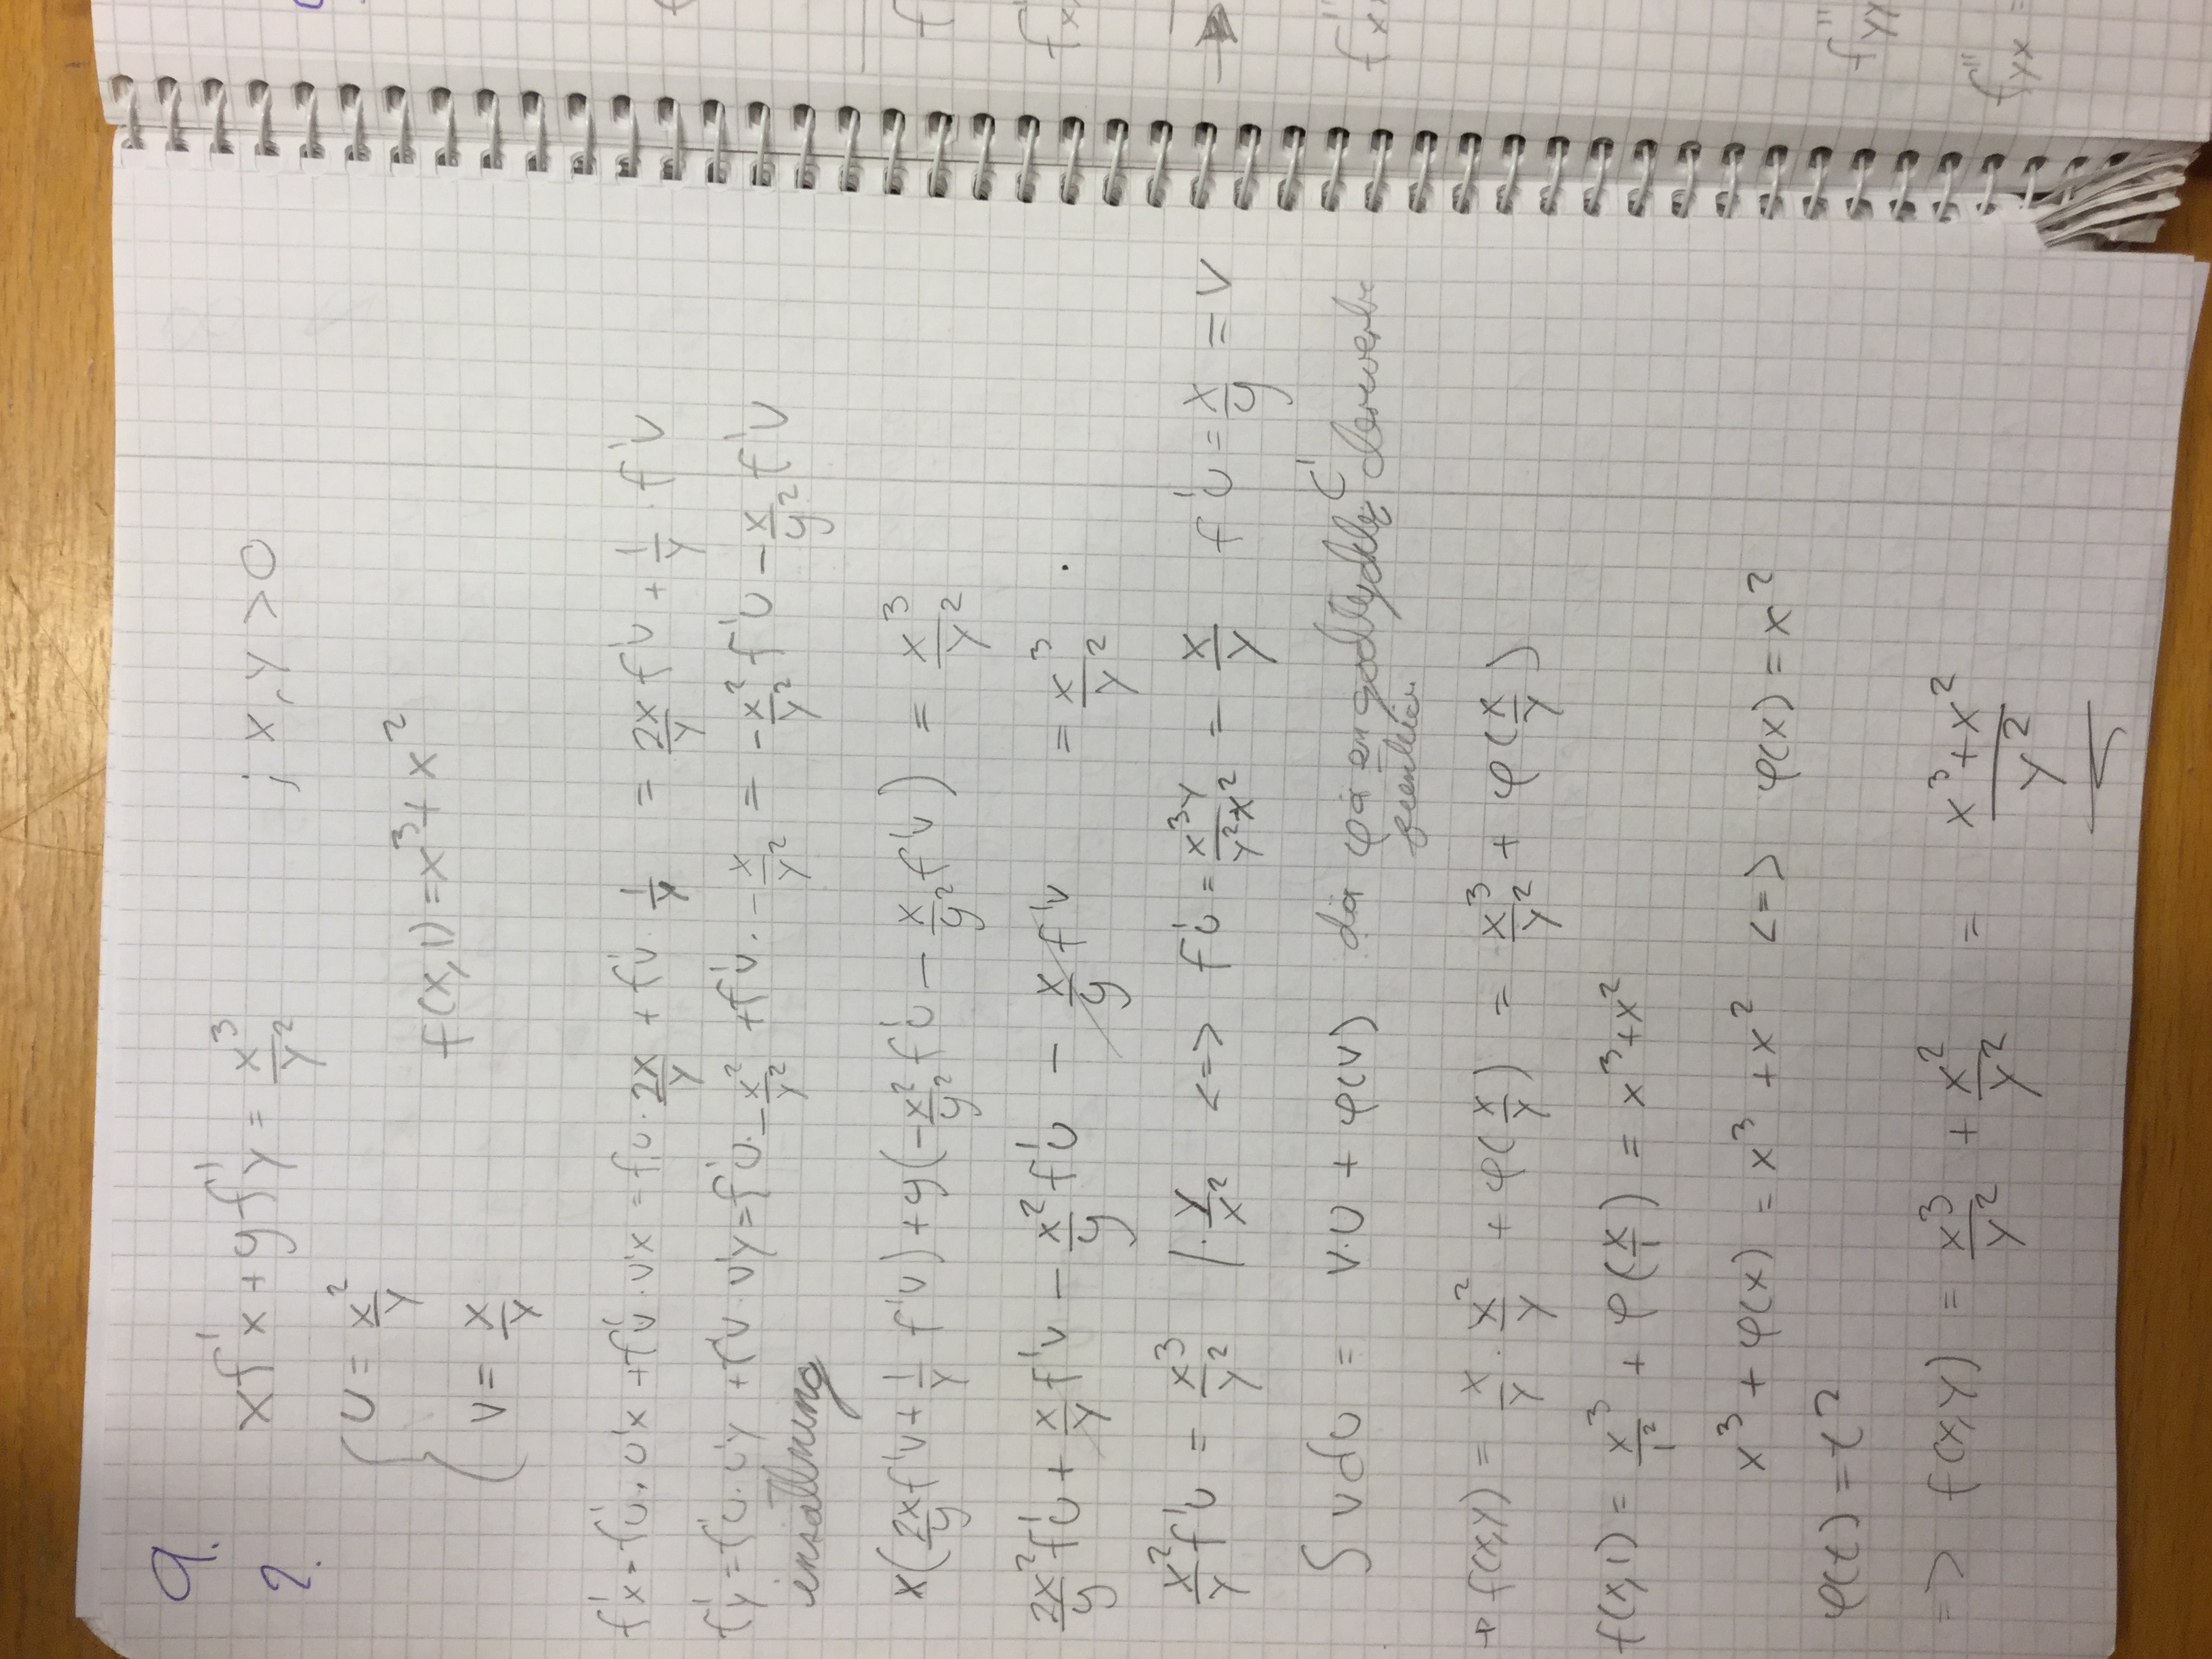 9.
2.
xf'x + yf'y = x³/y² ; x, y > 0
u = x²/y
f(x,1) = x³ + x²
v = x/y
f'x = f'u · u'x + f'v · v'x = f'u · 2x/y + f'v · 1/y = 2x/y f'u + 1/y · f'v
f'y = f'u · u'y + f'v · v'y = f'u · -x²/y² + f'v · -x/y² = -x²/y² f'u - x/y² f'v
insättning
x(2x/y f'u + 1/y f'v) + y(-x²/y² f'u - x/y² f'v) = x³/y²
2x²/y f'u + x/y f'v - x²/y f'u - x/y f'v = x³/y² .
x²/y f'u = x³/y² / · y/x² <=> f'u = x³y/y²x² = x/y f'u = x/y = v
∫ v du = v·u + φ(v) då φ är en godtycklig C'
funktion
→ f(x,y) = x/y · x²/y + φ(x/y) = x³/y² + φ(x/y)
f(x,1) = x³/1² + φ(x/1) = x³ + x²
x³ + φ(x) = x³ + x² <=> φ(x) = x²
φ(t) = t²
=> f(x,y) = x³/y² + x²/y² = x³+x²/y²
f'x
f''yy
f''yx =